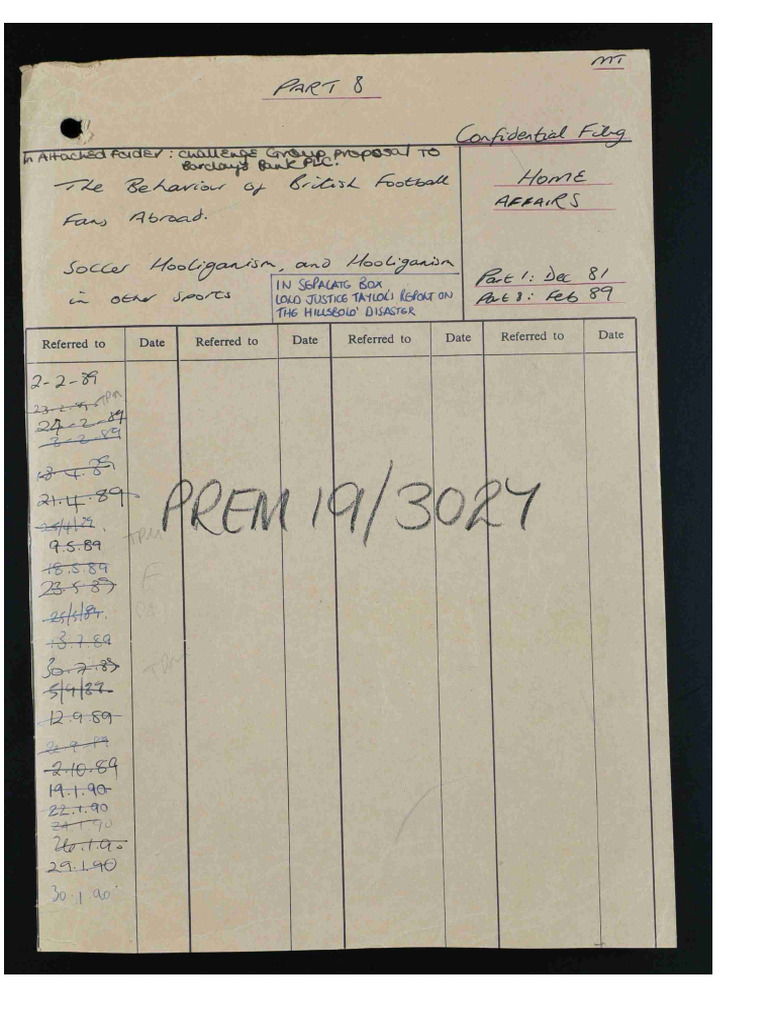 MT
PART 8
Confidential Filing
In Attached Folder: Challenge Group Proposal to
Barclays Bank PLC.
The Behaviour of British Football
Fans Abroad.
Soccer Hooliganism, and Hooliganism
in other sports
IN SEPARATE BOX
LORD JUSTICE TAYLOR'S REPORT ON
THE HILLSBORO' DISASTER
HOME
AFFAIRS
Part 1: Dec 81
Part 8: Feb 89
Referred to Date Referred to Date Referred to Date Referred to Date
2-2-89
TPM
24-2-89
3-2-89
18.4.89
21.4.89
PREM 19/3027
25/4/89.
TPM
9.5.89
18.5.89
23.5.89
F
25/5/89.
13.7.89
30.7.89
TPM
5/9/89
12.9.89
2.10.89
19.1.90
22.1.90
24.1.90
26.1.90
29.1.90
30.1.90